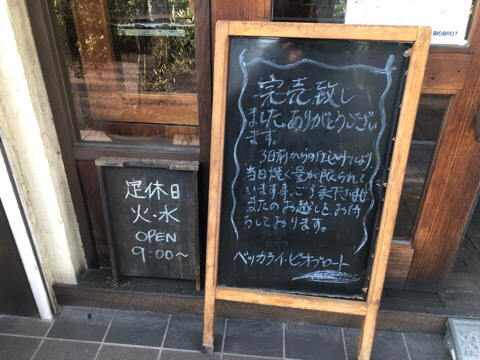 BIOBROT
完売致し
ました。ありがとうござい
ます。
3日前からの仕込みにより
当日焼く量が限られて
います事、ご了承下さいませ。
またのお越しを、お待
ちしております。
ベッカライ・ビオブロート
定休日
火・水
OPEN
9:00〜